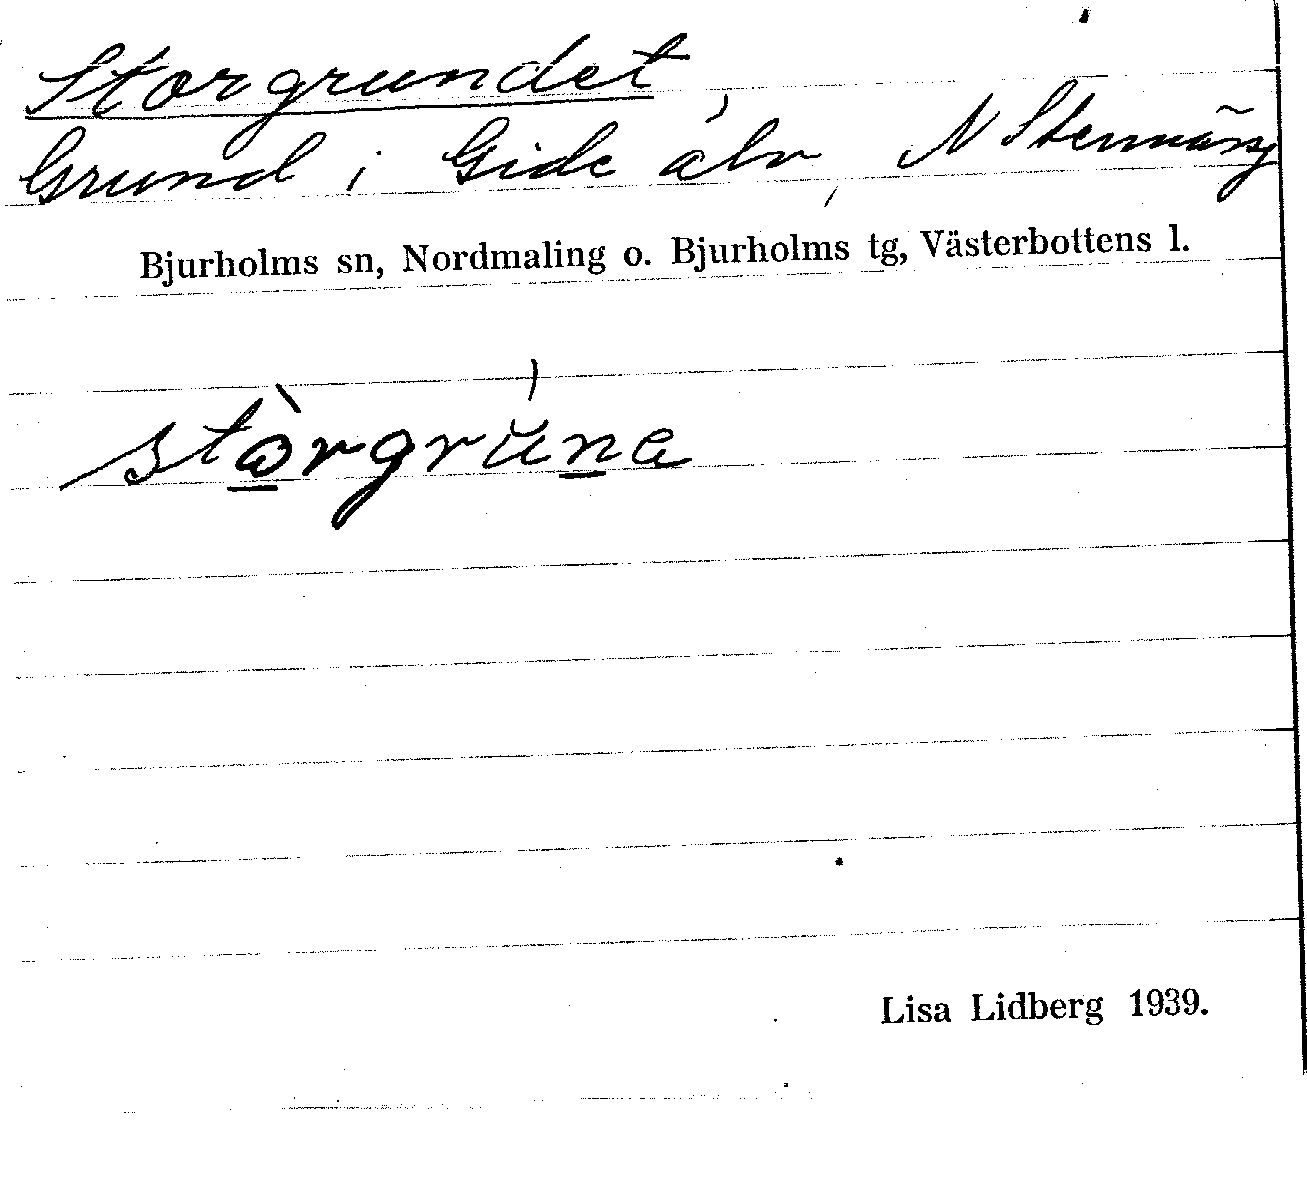 Storgrundet,
Grund i Gide älv, N Stennäs
Bjurholms sn, Nordmaling o. Bjurholms tg, Västerbottens l.
stòrgrùna
Lisa Lidberg 1939.